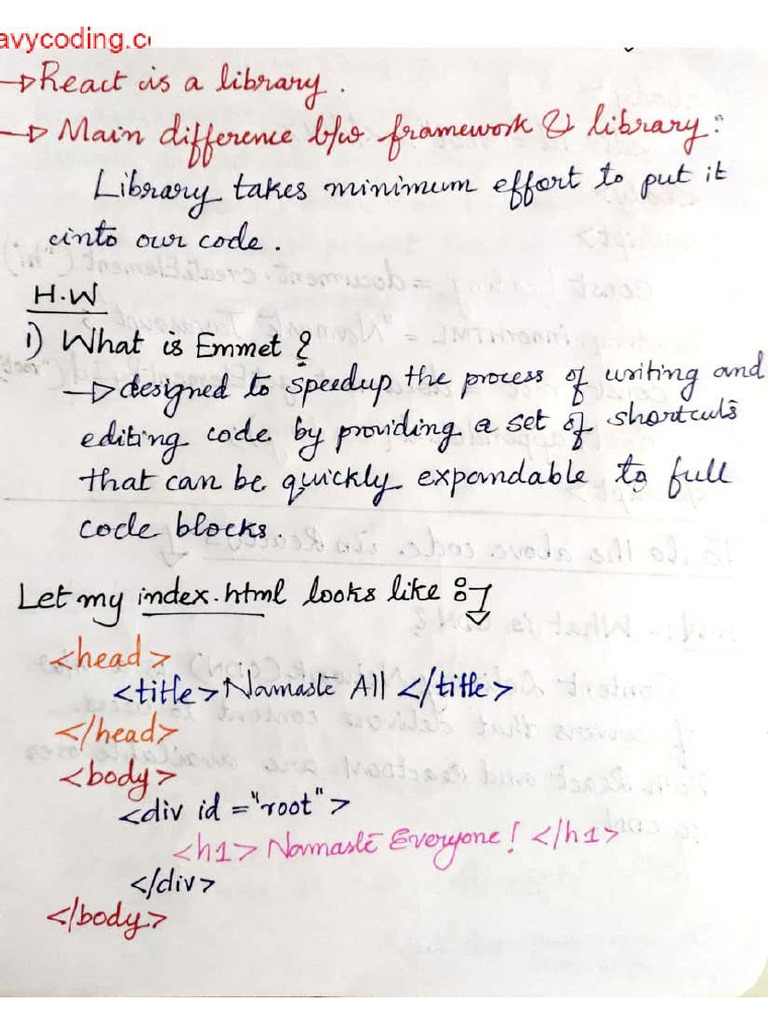 avycoding.c
→ React is a library.
→ Main difference b/w framework & library:
Library takes minimum effort to put it
into our code.
H.W
1) What is Emmet?
→ designed to speedup the process of writing and
editing code by providing a set of shortcuts
that can be quickly expandable to full
code blocks.
Let my index.html looks like :-
<head>
<title> Namaste All </title>
</head>
<body>
<div id = "root">
<h1> Namaste Everyone! </h1>
</div>
</body>